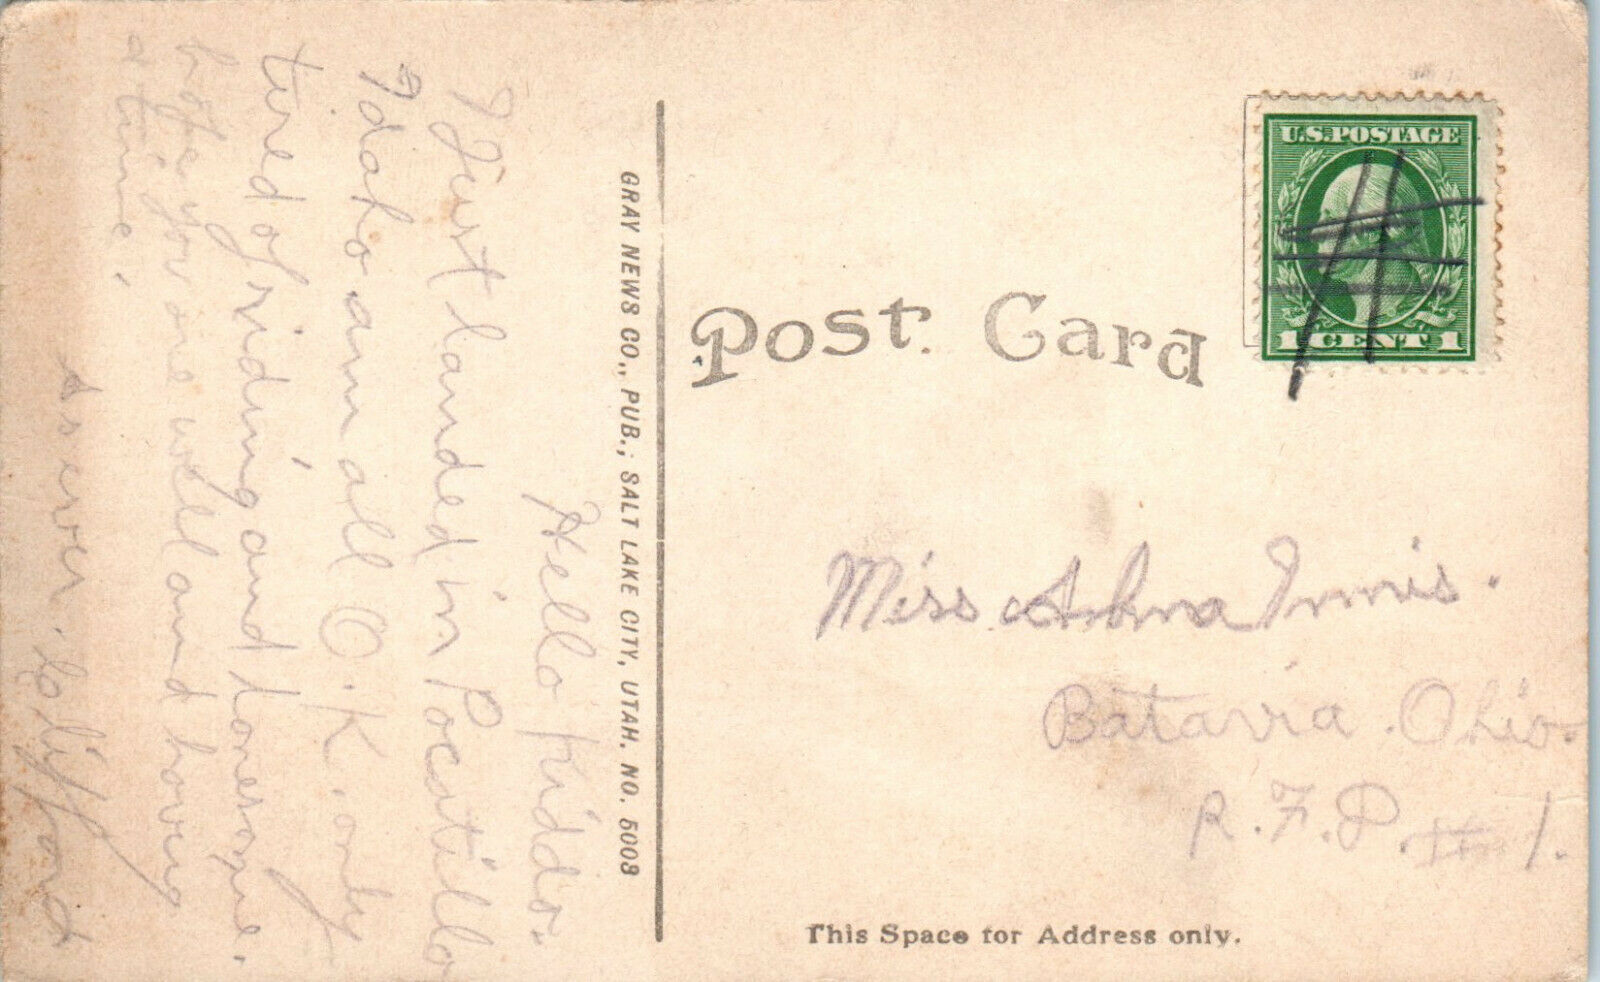 Hello Kiddo.
I Just landed in Pocatillo
Idaho am all O.K. only
tired of riding and Lonesome.
hope you are well and having
a time.
as ever. Clifford
GRAY NEWS CO., PUB., SALT LAKE CITY, UTAH. NO. 5008
Post Card
U.S. POSTAGE
1 CENT 1
Miss Innis.
Batavia. Ohio.
R.F.D. # 1.
This Space for Address only.